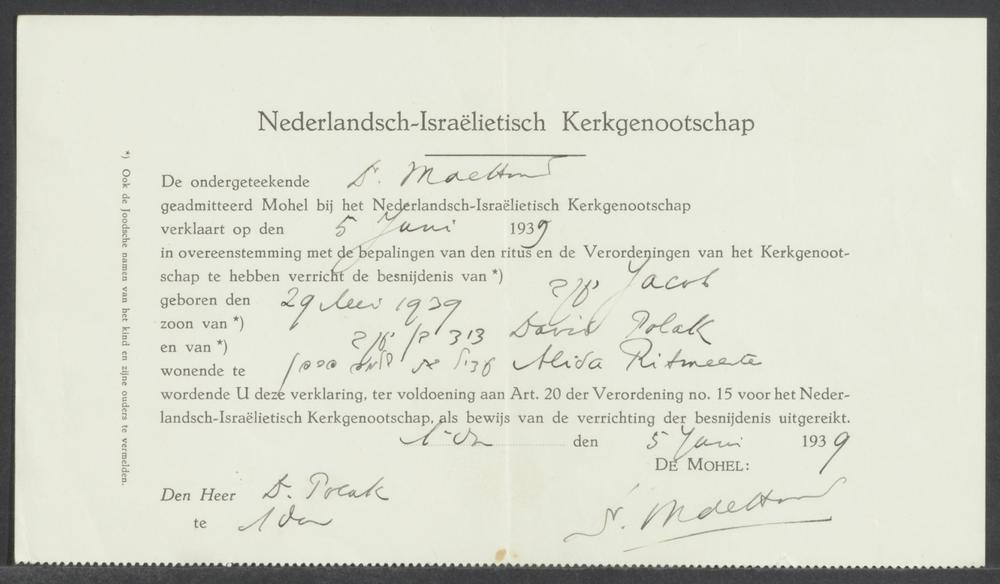 Nederlandsch-Israëlietisch Kerkgenootschap
De ondergeteekende
geadmitteerd Mohel bij het Nederlandsch-Israëlietisch Kerkgenootschap
verklaart op den 5 Juni 1939
in overeenstemming met de bepalingen van den ritus en de Verordeningen van het Kerkgenoot-
schap te hebben verricht de besnijdenis van *) יעקב Jacob
geboren den 29 Mei 1939
zoon van *) דוד בן יעקב David Polak
en van *) Alida Ritmeester
wonende te
wordende U deze verklaring, ter voldoening aan Art. 20 der Verordening no. 15 voor het Neder-
landsch-Israëlietisch Kerkgenootschap, als bewijs van de verrichting der besnijdenis uitgereikt.
A'dam den 5 Juni 1939
DE MOHEL:
Den Heer D. Polak
te A'dam
*) Ook de Joodsche namen van het kind en zijne ouders te vermelden.